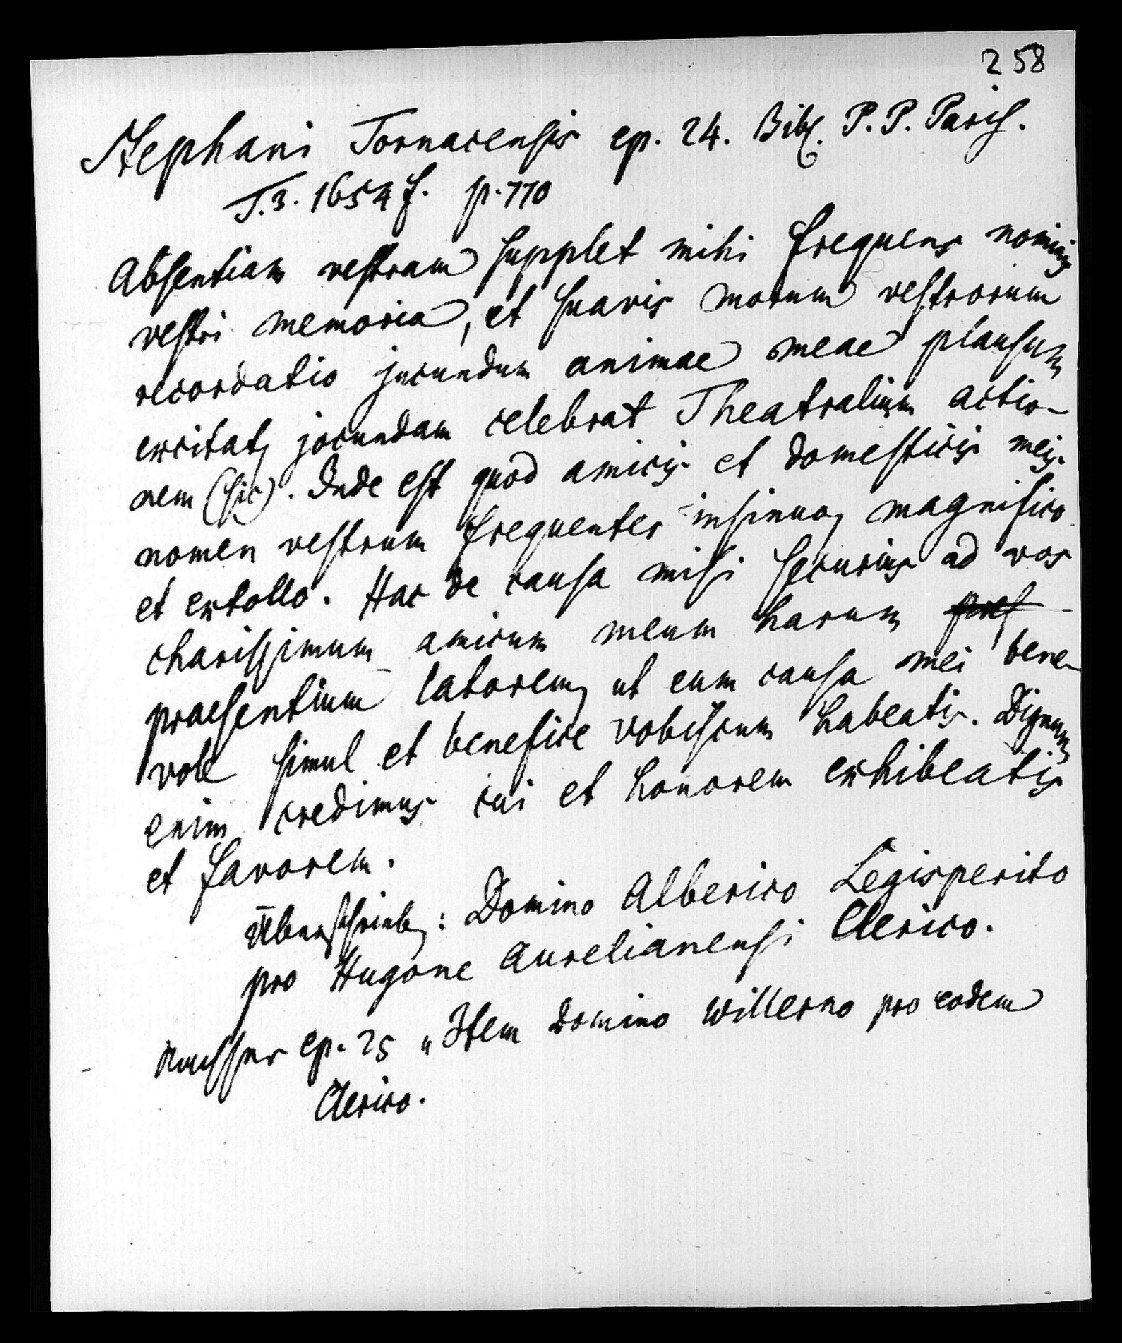 258
Stephani Tornacensis ep. 24. Bibl. P. P. Paris.
T. 3. 1654 f. p. 770
Absentiam vestram supplet mihi frequens nominis
vestri memoria, et suavis morum vestrorum
recordatio jucundum animae meae plausum
excitat, jocundam celebrat Theatralium actio-
nem (sic). Inde est quod amicis et domesticis meis
nomen vestrum frequenter insinuo, magnifico
et extollo. Hac de causa misi securius ad vos
charissimum amicum meum harum
praesentium latorem, ut eum causa mei bene-
vole simul et benefice vobiscum habeatis. Dignum
enim credimus cui et honorem exhibeatis
et favorem.
Überschrieben: Domino Alberico Legisperito
pro Hugone Aurelianensi Clerico.
ep. 25 „Item domino Willermo pro eodem
Clerico.